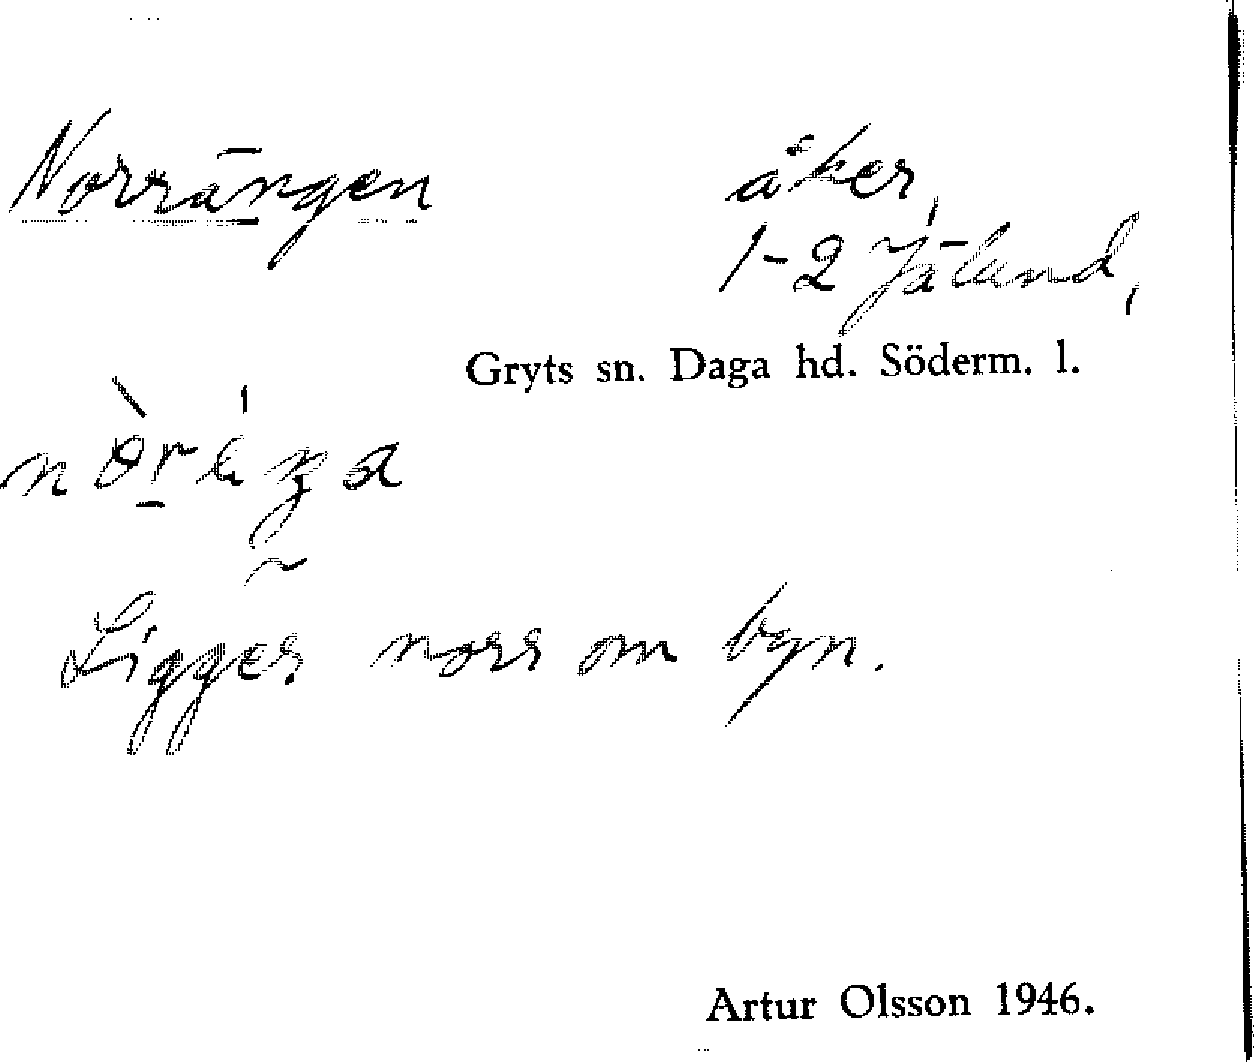 Norrängen
åker,
1-2 Jäland,
Gryts sn. Daga hd. Söderm. l.
Ligger norr om byn.
Artur Olsson 1946.